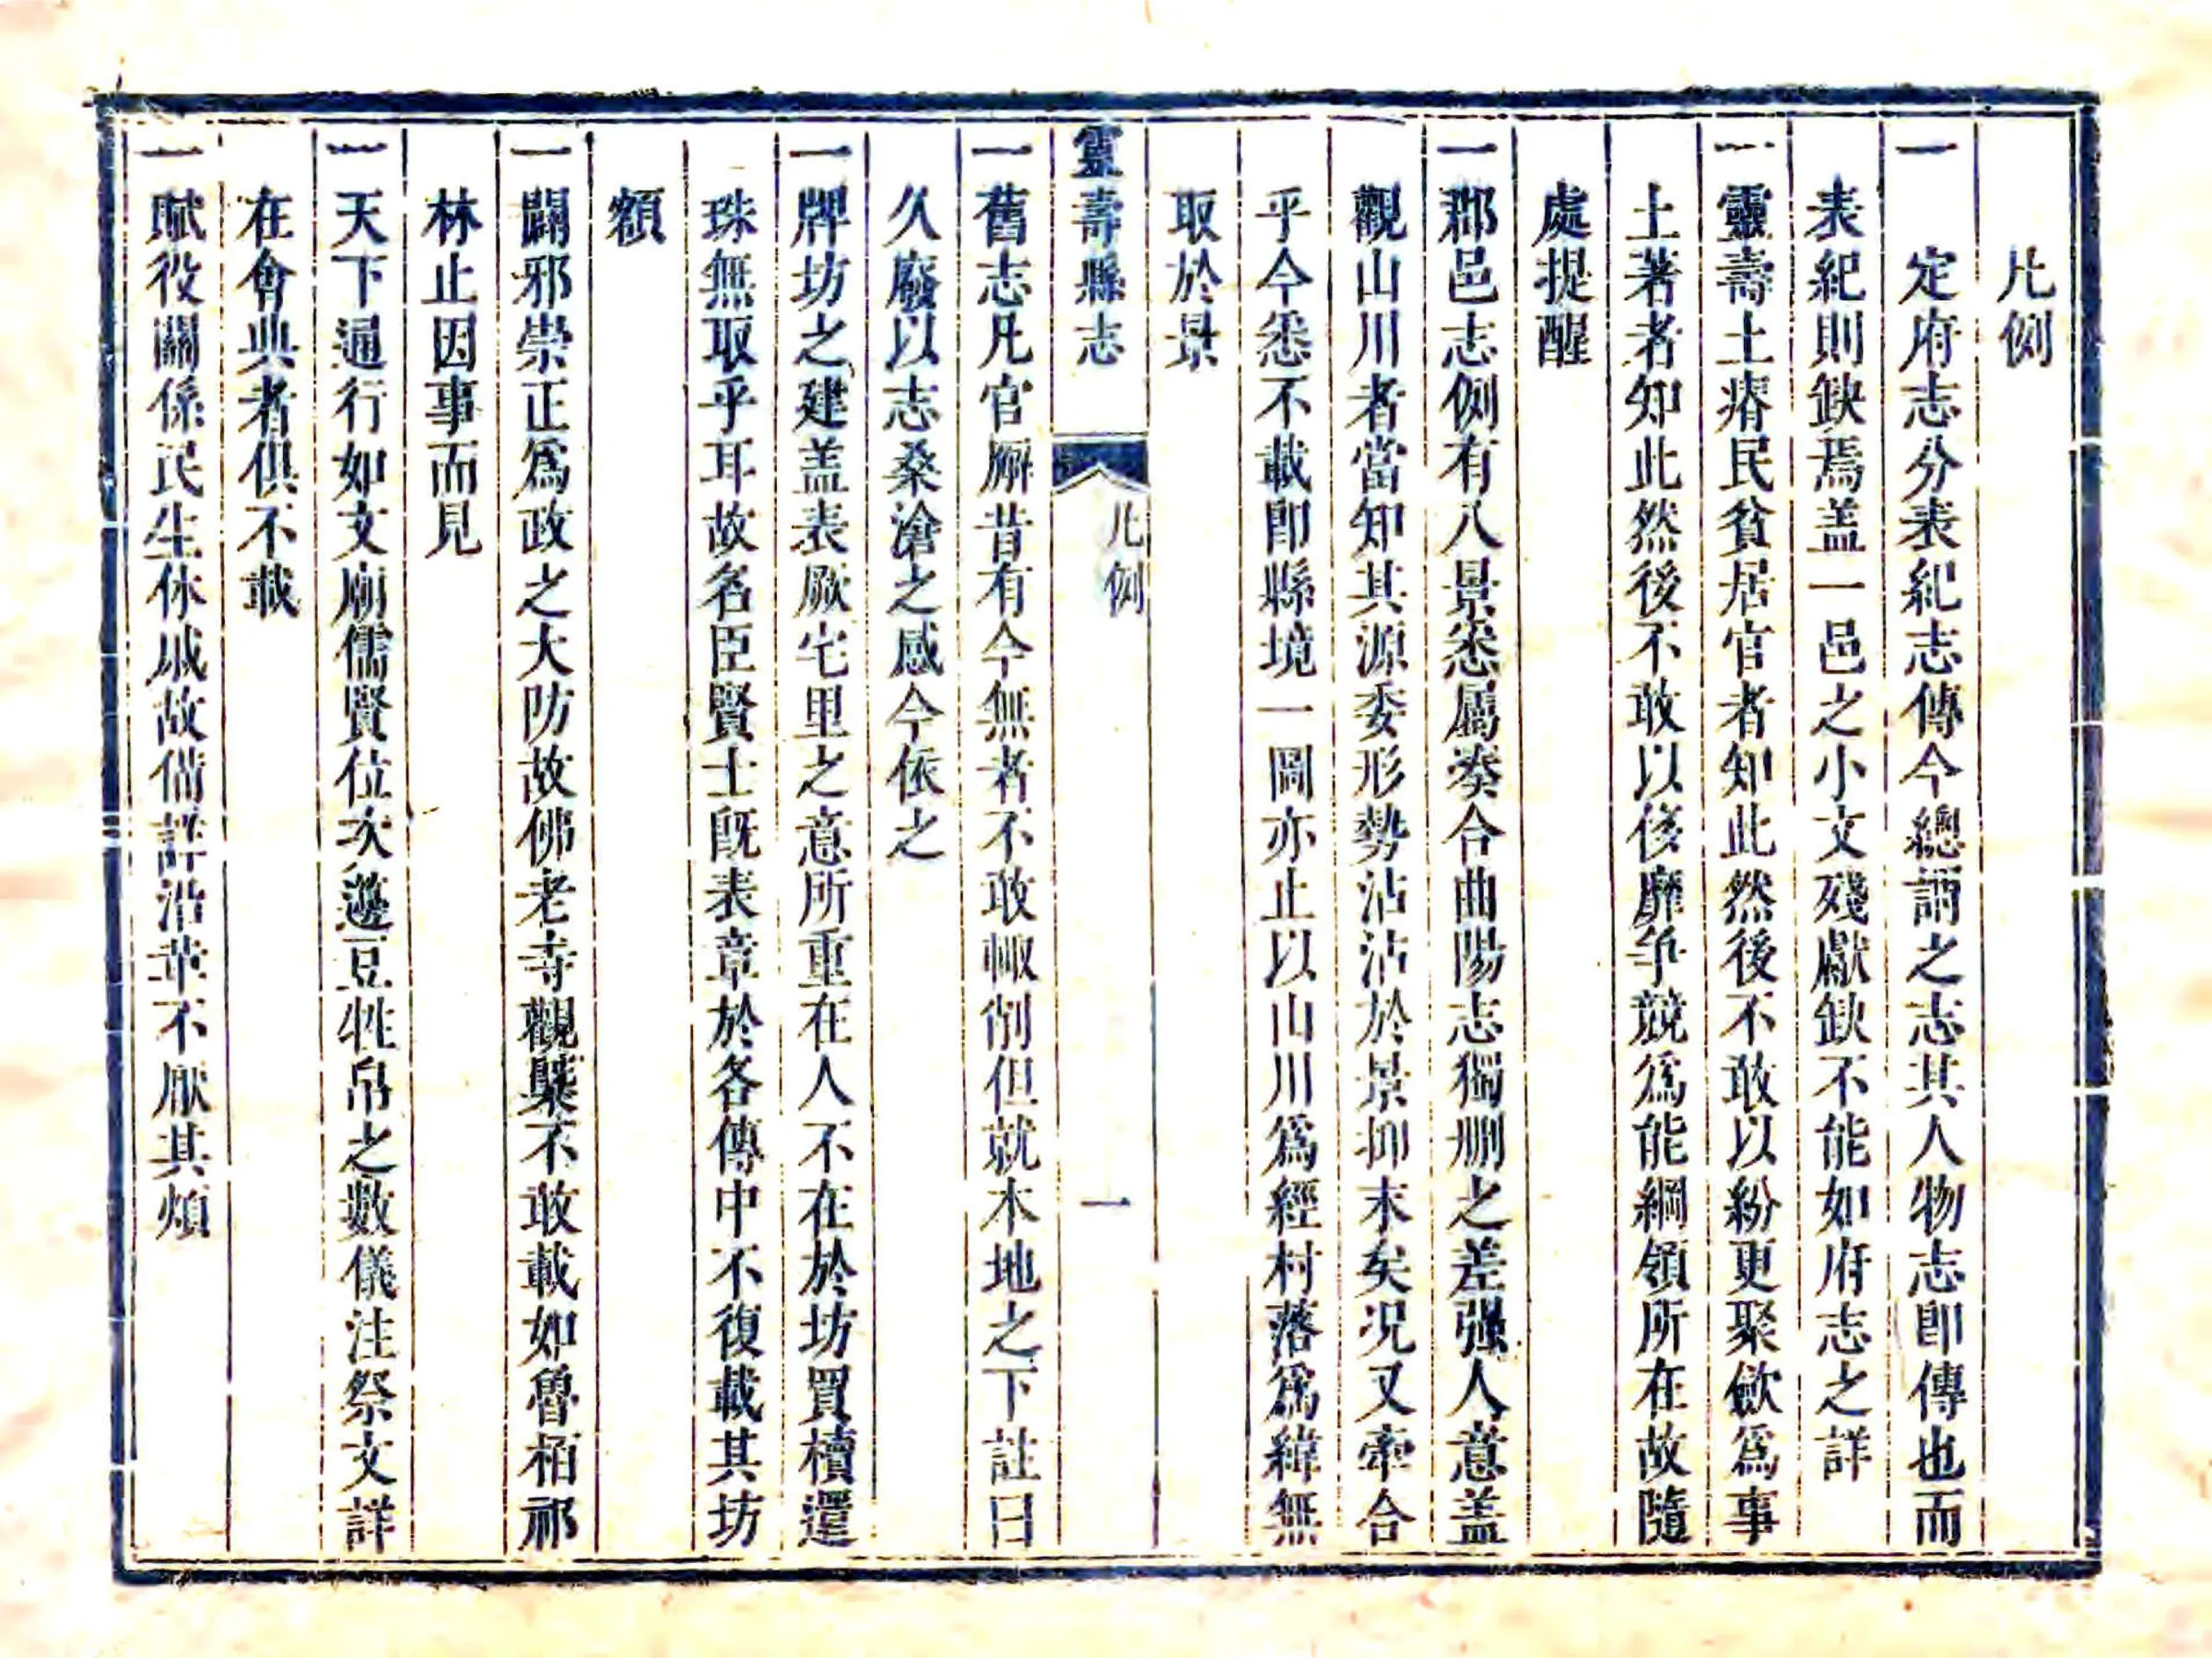 凡例
一　定府志分表紀志傳今總謂之志其人物志即傳也而
表紀則缺焉盖一邑之小文殘獻缺不能如府志之詳
一靈壽土瘠民貧居官者知此然後不敢以紛更聚歛爲事
土著者知此然後不敢以侈靡争競爲能綱領所在故隨
處提醒
一郡邑志例有八景悉屬凑合曲陽志獨刪之差强人意盖
觀山川者當知其源委形勢沾沾於景抑末矣况又牽合
乎今悉不載即縣境一圖亦止以山川爲經村落爲緯無
取於景
靈壽縣志
凡例
一
一舊志凡官廨昔有今無者不敢輙削但就本地之下註曰
久廢以志桑滄之感今依之
一牌坊之建盖表厥宅里之意所重在人不在於坊買櫝還
珠無取乎耳故名臣賢士既表章於各傳中不復載其坊
額
一闢邪崇正爲政之大防故佛老寺觀槩不敢載如魯栢祁
林止因事而見
一天下通行如文廟儒賢位次籩豆牲帛之數儀注祭文詳
在會典者俱不載
一賦役關係民生休戚故備詳沿革不厭其煩